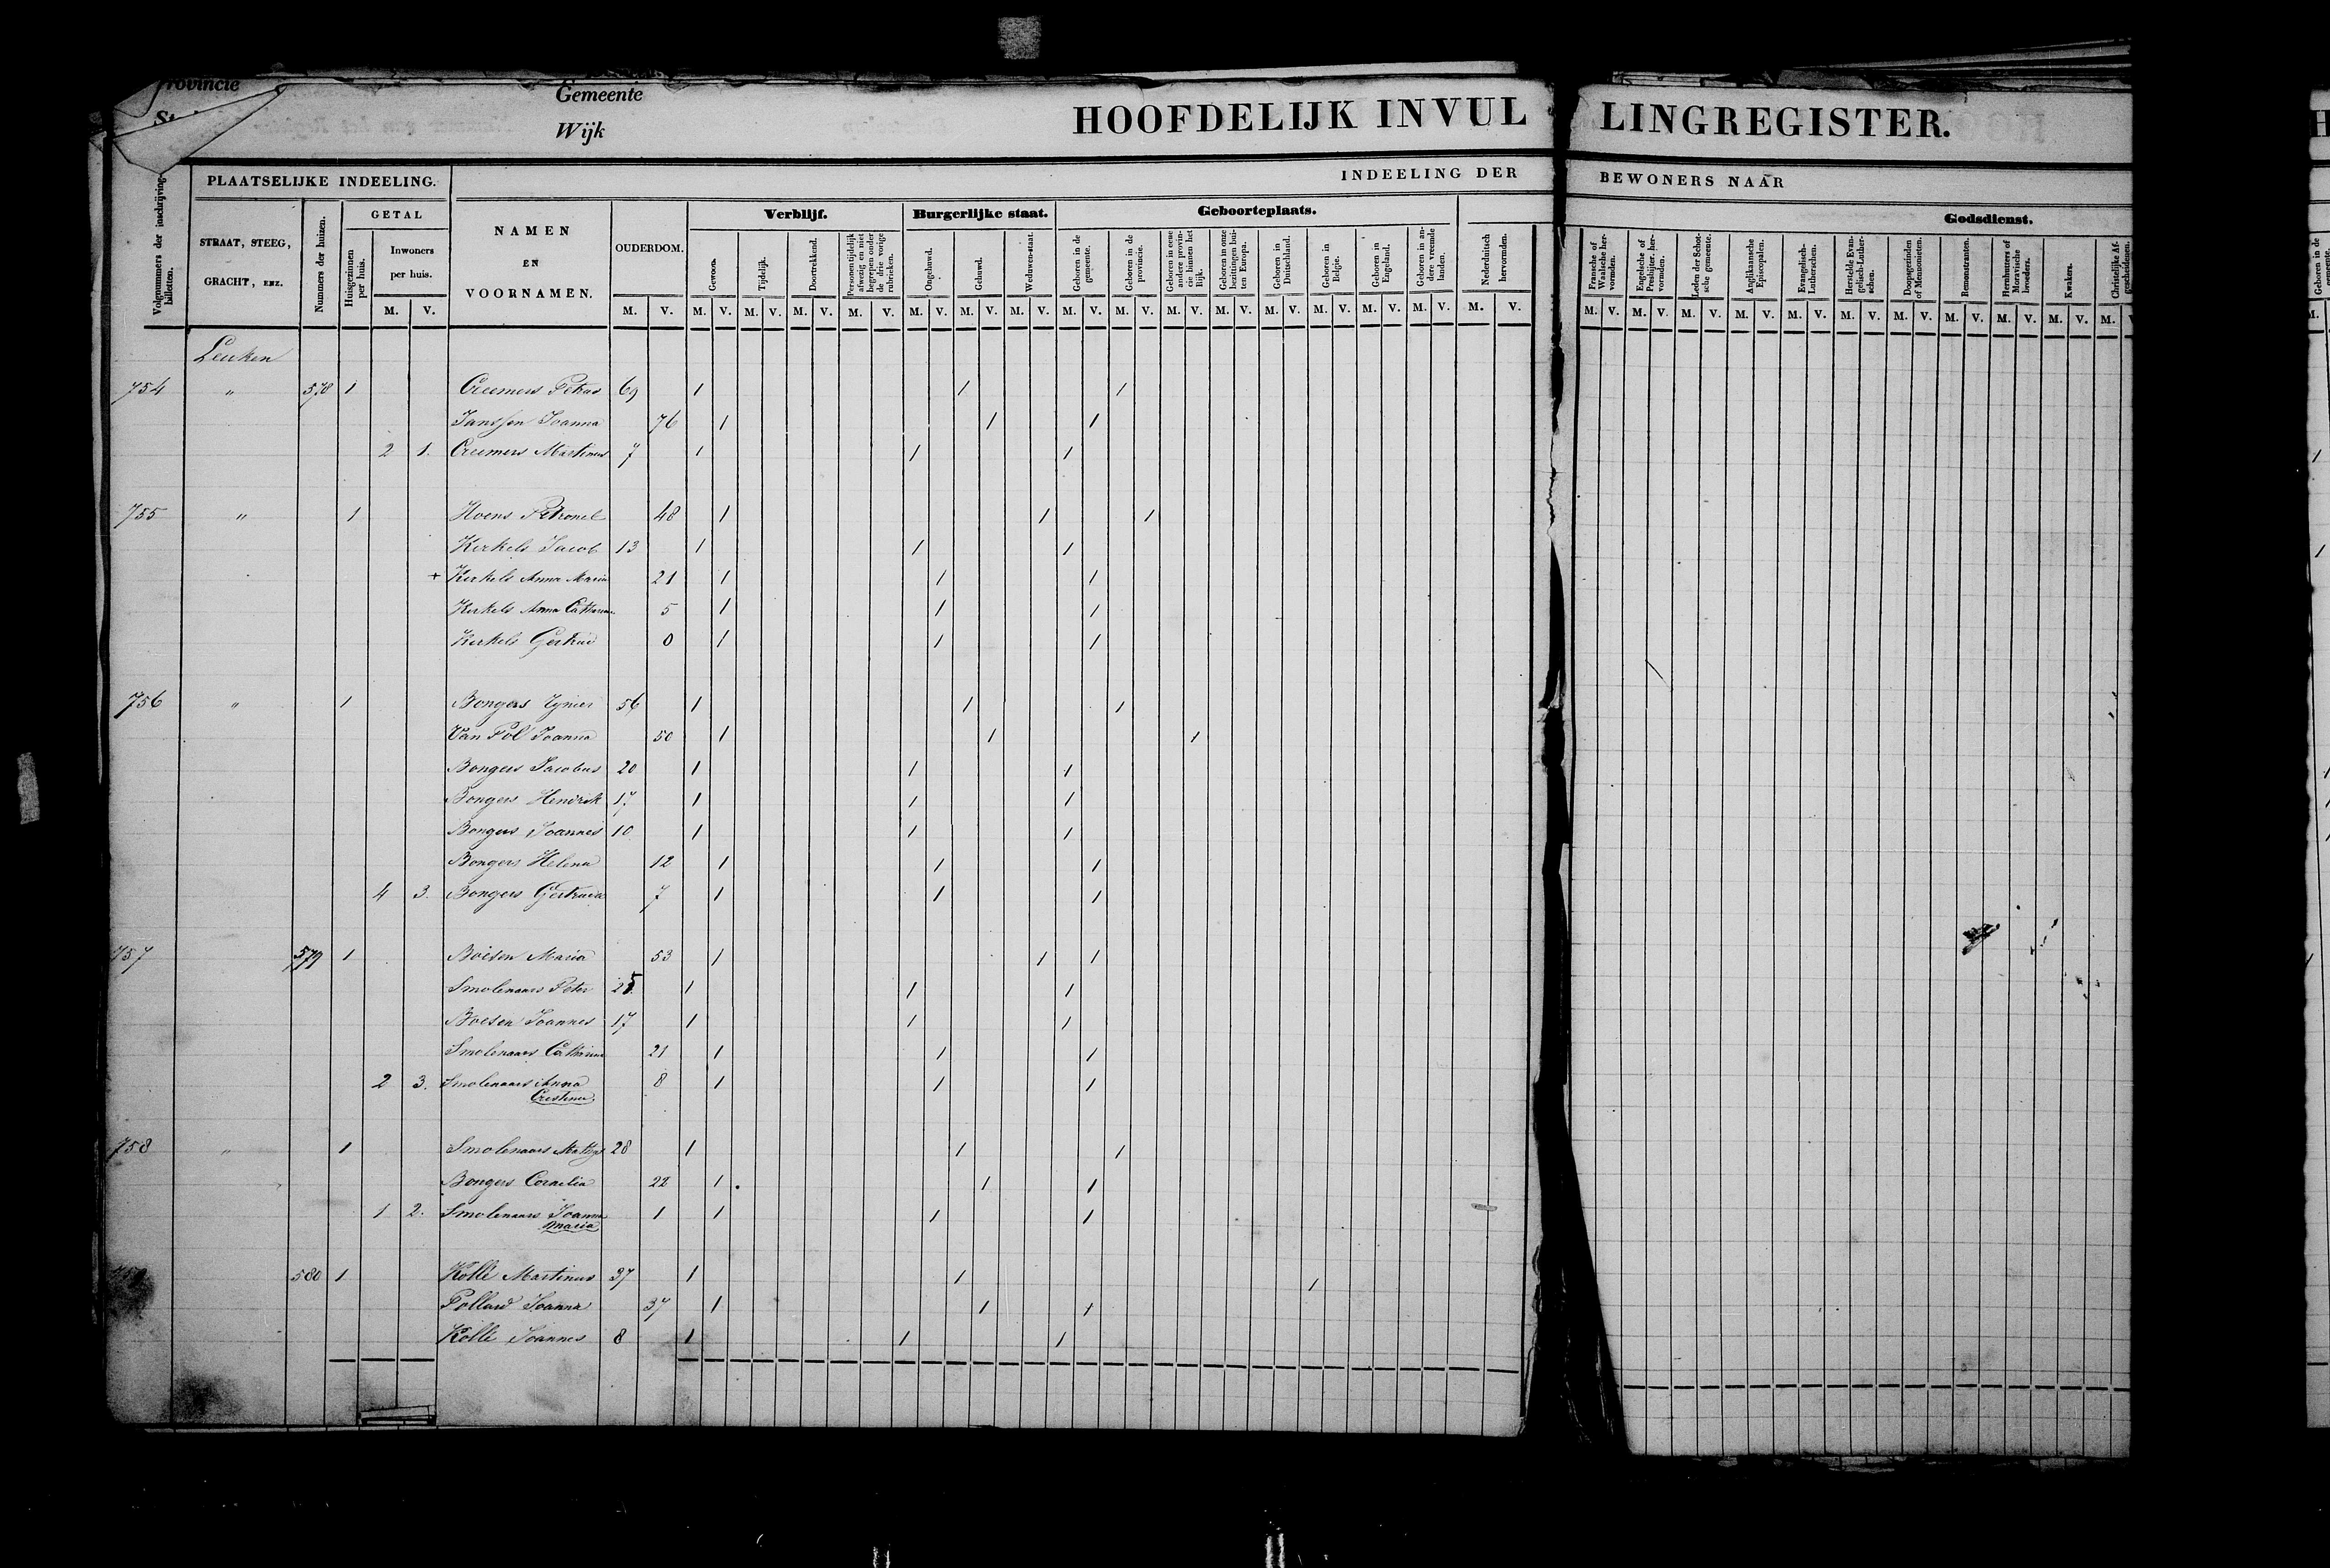 Provincie
Gemeente
Wijk
HOOFDELIJK INVUL LINGREGISTER.
PLAATSELIJKE INDEELING.
INDEELING DER BEWONERS NAAR
Volgnummers der inschrijving-billetten.
STRAAT, STEEG, GRACHT, ENZ.
Nummers der huizen.
GETAL
Huisgezinnen per huis.
Inwoners per huis.
M. V.
NAMEN EN VOORNAMEN.
OUDERDOM.
M. V.
Verblijf.
Gewoon.
Tijdelijk.
Doortrekkend.
Personen tijdelijk afwezig en niet begrepen onder de drie vorige rubrieken.
M. V. M. V. M. V. M. V.
Burgerlijke staat.
Ongehuwd.
Gehuwd.
Weduwen-staat.
M. V. M. V. M. V.
Geboorteplaats.
Geboren in de gemeente.
Geboren in de provincie.
Geboren in eene andere provincie binnen het Rijk.
Geboren in onze bezittingen buiten Europa.
Geboren in Duitschland.
Geboren in Belgie.
Geboren in Engeland.
Geboren in andere vreemde landen.
M. V. M. V. M. V. M. V. M. V. M. V. M. V. M. V.
Godsdienst.
Nederduitsch hervormden.
Fransche of Waalsche hervormden.
Engelsche of Presbijter. hervormden.
Leden der Schotsche gemeente.
Anglikaansche Episcopalen.
Evangelisch-Lutherschen.
Herstelde Evangelisch-Lutherschen.
Doopsgezinden of Mennonieten.
Remonstranten.
Hernhutters of Moravische broeders.
Kwakers.
Christelijke Afgescheidenen.
M. V. M. V. M. V. M. V. M. V. M. V. M. V. M. V. M. V. M. V. M. V. M. V
Leuken
754 " 578 1 Creemers Petrus 69 1 1 1
Janssen Joanna 76 1 1 1
2 1. Creemers Martinus 7 1 1 1
755 " 1 Hoens Petronel 48 1 1 1
Kerkels Jacob 13 1 1 1
+ Kerkels Anna Maria 21 1 1 1
Kerkels Anna Catharina 5 1 1 1
Kerkels Gertrud 0 1 1 1
756 " 1 Bongers 56 1 1 1
Van Pol Joanna 50 1 1 1
Bongers Jacobus 20 1 1 1
Bongers Hendrik 17. 1 1 1
Bongers Joannes 10 1 1 1
Bongers Helena 12 1 1 1
4 3. Bongers Gertruda 7 1 1 1
757 579 1 Boesen Maria 53 1 1 1
Smolenaars Peter 25. 1 1 1
Boesen Joannes 17 1 1 1
Smolenaars Catharina 21 1 1 1
2 3. Smolenaars Anna 8 1 1 1
Crestina
758 " 1 Smolenaars Mathys 28 1 1 1
Bongers Cornelia 22 1 1 1
1 2. Smolenaars Joanna 1 1 1 1
Maria
580 1 Kollé Martinus 37 1 1 1
Pollard Joanna 37 1 1 1
Kollé Joannes 8 1 1 1